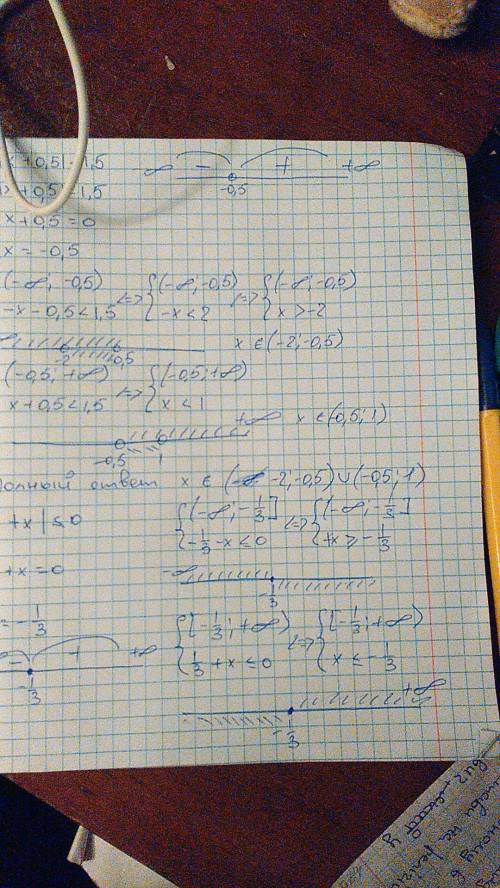 x+0,5|<1,5
-∞ - + +∞
-0,5
x+0,5|<1,5
x+0,5=0
x=-0,5
(-∞; -0,5) <=> {(-∞; -0,5) <=> {(-∞; -0,5)
-x-0,5<1,5 -x<2 x>-2
-2 -0,5 x∈(-2;-0,5)
(-0,5;+∞) <=> {(-0,5;+∞)
x+0,5<1,5 x<1
+∞ x∈(-0,5;1)
-0,5 1
Полный ответ x∈(-2;-0,5)∪(-0,5;1)
+x|≤0 {(-∞;-1/3] <=> {(-∞;-1/3]
-1/3-x≤0 +x≥-1/3
+x=0
-∞
-1/3
=-1/3 {[-1/3;+∞) <=> {[-1/3;+∞)
- + +∞ 1/3+x≤0 x≤-1/3
-1/3
+∞
-1/3